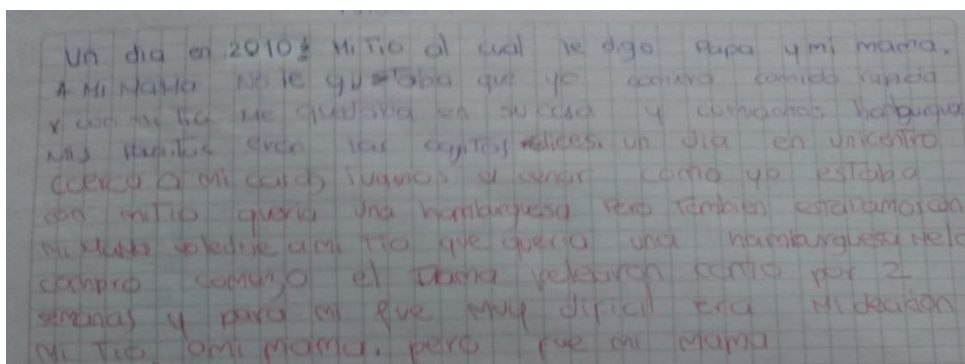 Un dia en 2010 Mi Tio al cual le digo Papa y mi mama.
A Mi Mama No le gustaba que yo comida rapida
y con mi tia me quedaba en su casa y hamburguesa
eran las cajitas felices. un dia en unicentro
cerca a mi casa ibamos a cenar como yo estaba
con mi Tio queria una hamburguesa Pero Tambien estabamos con
mi Mama le dije a mi Tio que queria una hamburguesa Me la
compro comenzo el Drama pelearon como por 2
semanas y para mi fue muy dificil era Mi decision
Mi Tio o mi mama. pero fue mi Mama